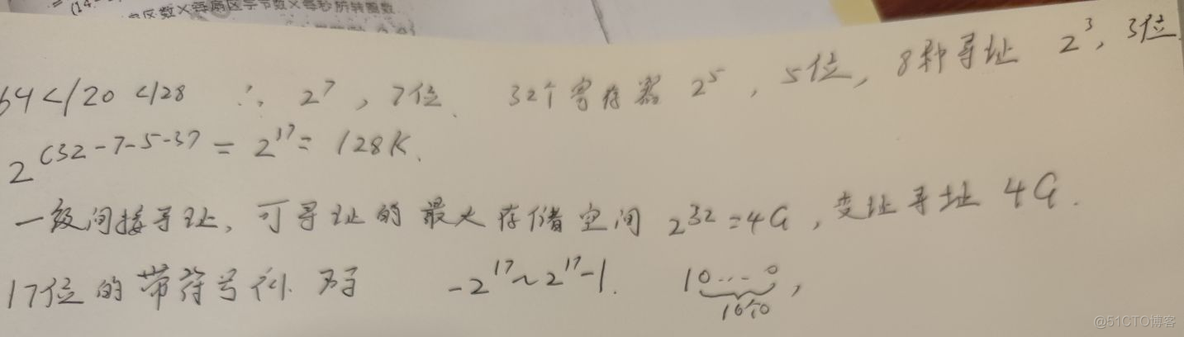 (14
区数×每扇区字节数×每秒所转圈数
64</20 </28 ∴ 2^7, 7位、 32个寄存器 2^5, 5位, 8种寻址 2^3, 3位
2^(32-7-5-3) = 2^17 = 128K.
一级间接寻址, 可寻址的最大存储空间 2^32=4G, 变址寻址 4G.
17位的带符号 -2^17~2^17-1. 10...0,
16个0
@51CTO博客